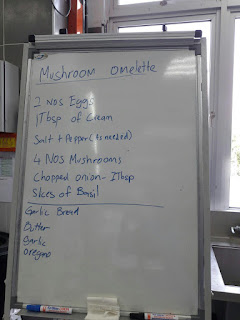 Mushroom omelette
2 Nos Eggs
1Tbsp of Cream
Salt + Pepper (as needed)
4 Nos Mushrooms
Chopped onion - 1Tbsp
Slices of Basil
Garlic Bread
Butter
Garlic
oregano